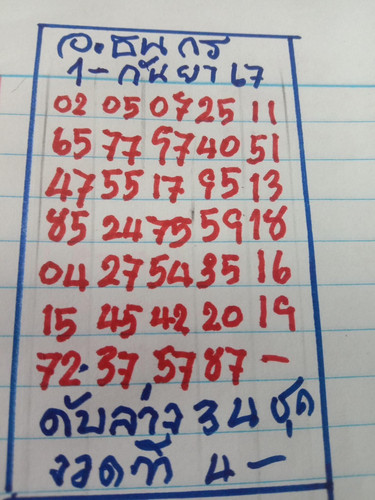 อ.ธนกร
1-กันยา 67
02 05 07 25 11
65 77 97 40 51
47 55 17 95 13
85 24 75 59 18
04 27 54 35 16
15 45 42 20 19
72. 37 57 87 -
ดับล่าง 34 ชุด
งวดที่ 4 -